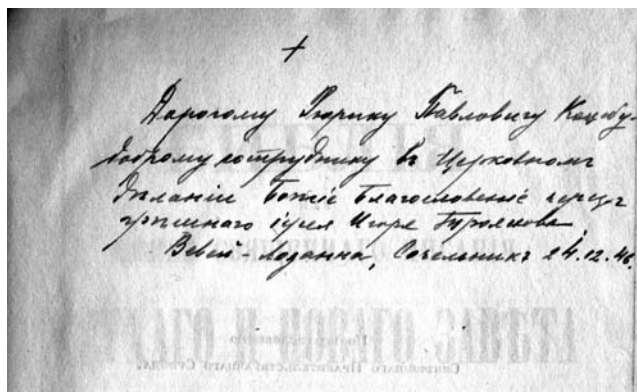 +
Дорогому Рюрику Павловичу Коцебу-
доброму сотруднику въ Церковномъ
дѣланіи Божіе Благословеніе черезъ
грѣшнаго іерея Игоря Троянова.
Вевей - Лозанна, Сочельникъ